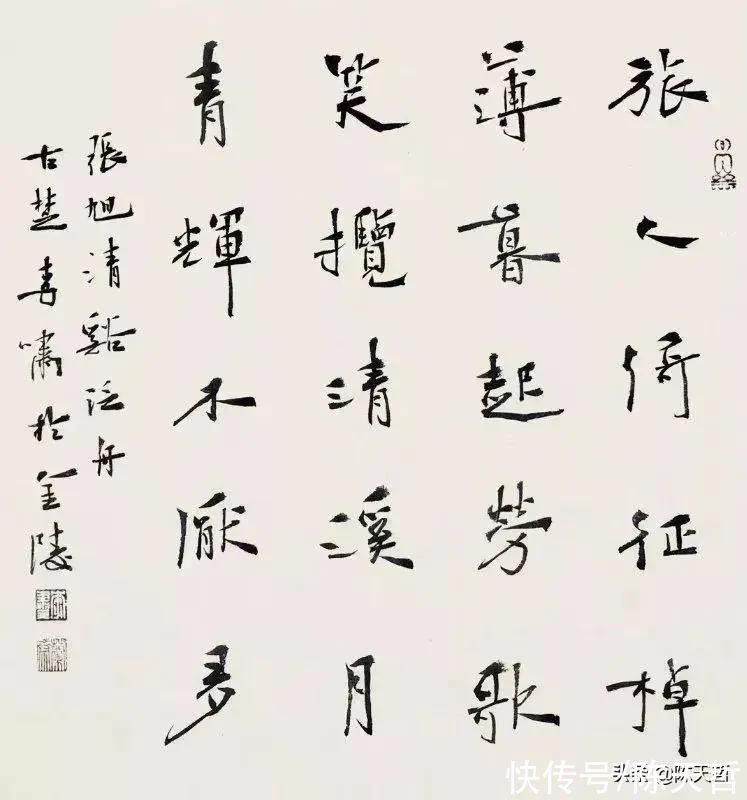 旅人倚征棹
薄暮起勞歌
笑攬清溪月
青輝不厭多
張旭清谿泛舟
古楚李嘯於金陵
头条 @陈天哲
快传号/陈天哲